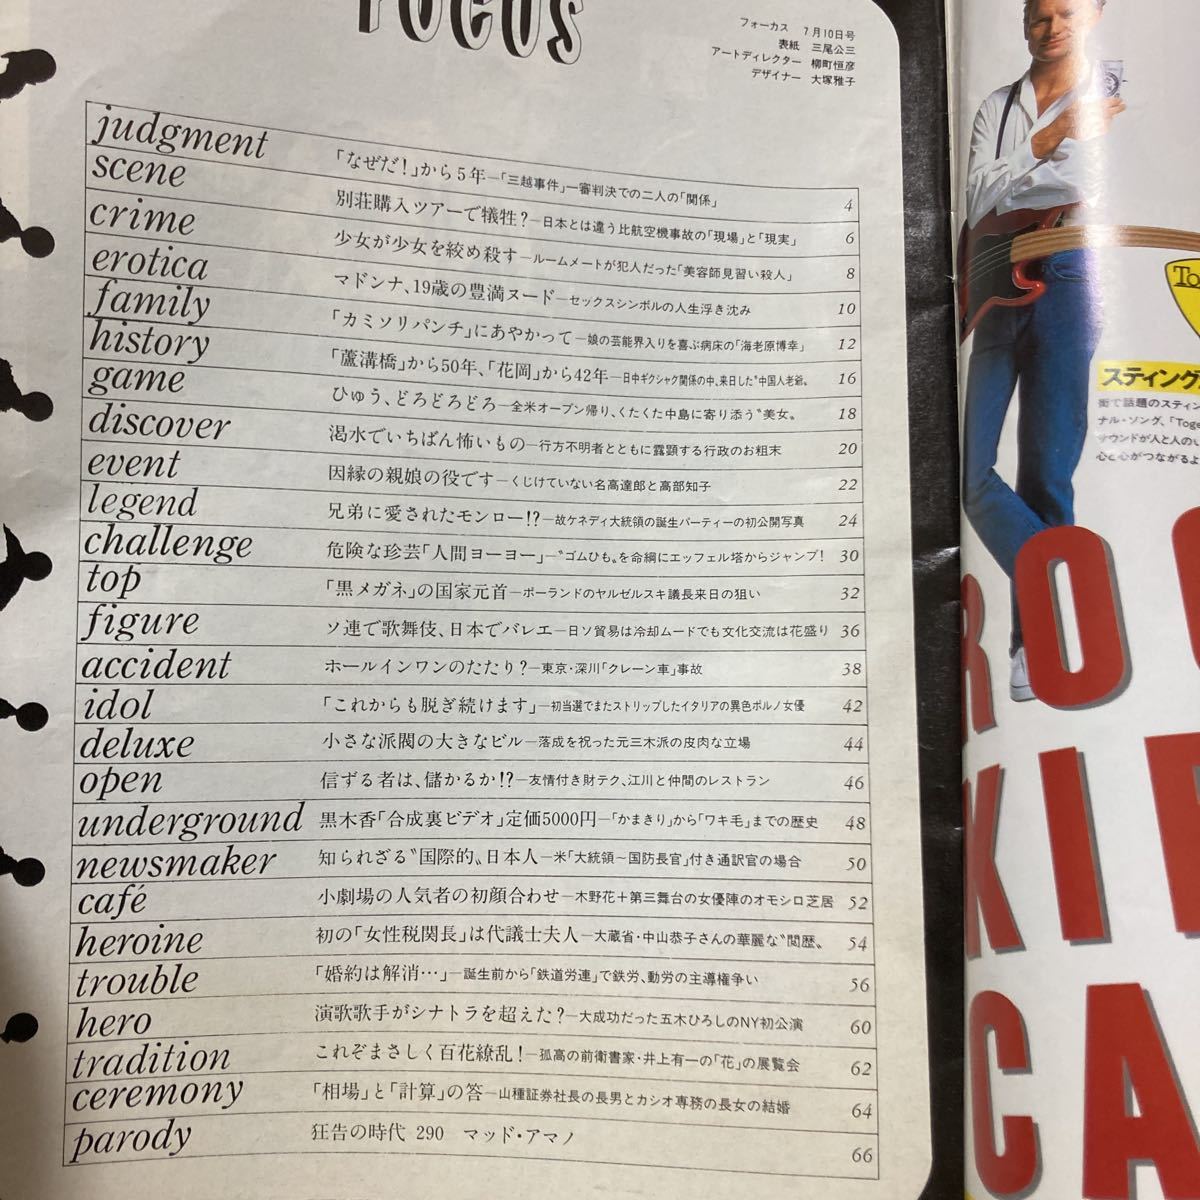 FOCUS
フォーカス 7月10日号
表紙 三尾公三
アートディレクター 柳町恒彦
デザイナー 大塚雅子
judgment 「なぜだ!」から5年—「三越事件」一審判決での二人の「関係」 4
scene 別荘購入ツアーで犠牲?—日本とは違う比航空機事故の「現場」と「現実」 6
crime 少女が少女を絞め殺す—ルームメートが犯人だった「美容師見習い殺人」 8
erotica マドンナ、19歳の豊満ヌード—セックスシンボルの人生浮き沈み 10
family 「カミソリパンチ」にあやかって—娘の芸能界入りを喜ぶ病床の「海老原博幸」 12
history 「蘆溝橋」から50年、「花岡」から42年—日中ギクシャク関係の中、来日した〝中国人老爺〟 16
game ひゅう、どろどろどろ—全米オープン帰り、くたくた中島に寄り添う〝美女〟 18
discover 渇水でいちばん怖いもの—行方不明者とともに露顕する行政のお粗末 20
event 因縁の親娘の役です—くじけていない名高達郎と高部知子 22
legend 兄弟に愛されたモンロー!?—故ケネディ大統領の誕生パーティーの初公開写真 24
challenge 危険な珍芸「人間ヨーヨー」—〝ゴムひも〟を命綱にエッフェル塔からジャンプ! 30
top 「黒メガネ」の国家元首—ポーランドのヤルゼルスキ議長来日の狙い 32
figure ソ連で歌舞伎、日本でバレエ—日ソ貿易は冷却ムードでも文化交流は花盛り 36
accident ホールインワンのたたり?—東京・深川「クレーン車」事故 38
idol 「これからも脱ぎ続けます」—初当選でまたストリップしたイタリアの異色ポルノ女優 42
deluxe 小さな派閥の大きなビル—落成を祝った元三木派の皮肉な立場 44
open 信ずる者は、儲かるか!?—友情付き財テク、江川と仲間のレストラン 46
underground 黒木香「合成裏ビデオ」定価5000円—「かまきり」から「ワキ毛」までの歴史 48
newsmaker 知られざる〝国際的〟日本人—米「大統領~国防長官」付き通訳官の場合 50
café 小劇場の人気者の初顔合わせ—木野花+第三舞台の女優陣のオモシロ芝居 52
heroine 初の「女性税関長」は代議士夫人—大蔵省・中山恭子さんの華麗な〝閲歴〟 54
trouble 「婚約は解消…」—誕生前から「鉄道労連」で鉄労、動労の主導権争い 56
hero 演歌歌手がシナトラを超えた?—大成功だった五木ひろしのNY初公演 60
tradition これぞまさしく百花繚乱!—孤高の前衛書家・井上有一の「花」の展覧会 62
ceremony 「相場」と「計算」の答—山種証券社長の長男とカシオ専務の長女の結婚 64
parody 狂告の時代 290 マッド・アマノ 66
スティング
街で話題のスティン
ナル・ソング、「Toge
サウンドが人と人のい
心と心がつながるよ
RO
KI
CA